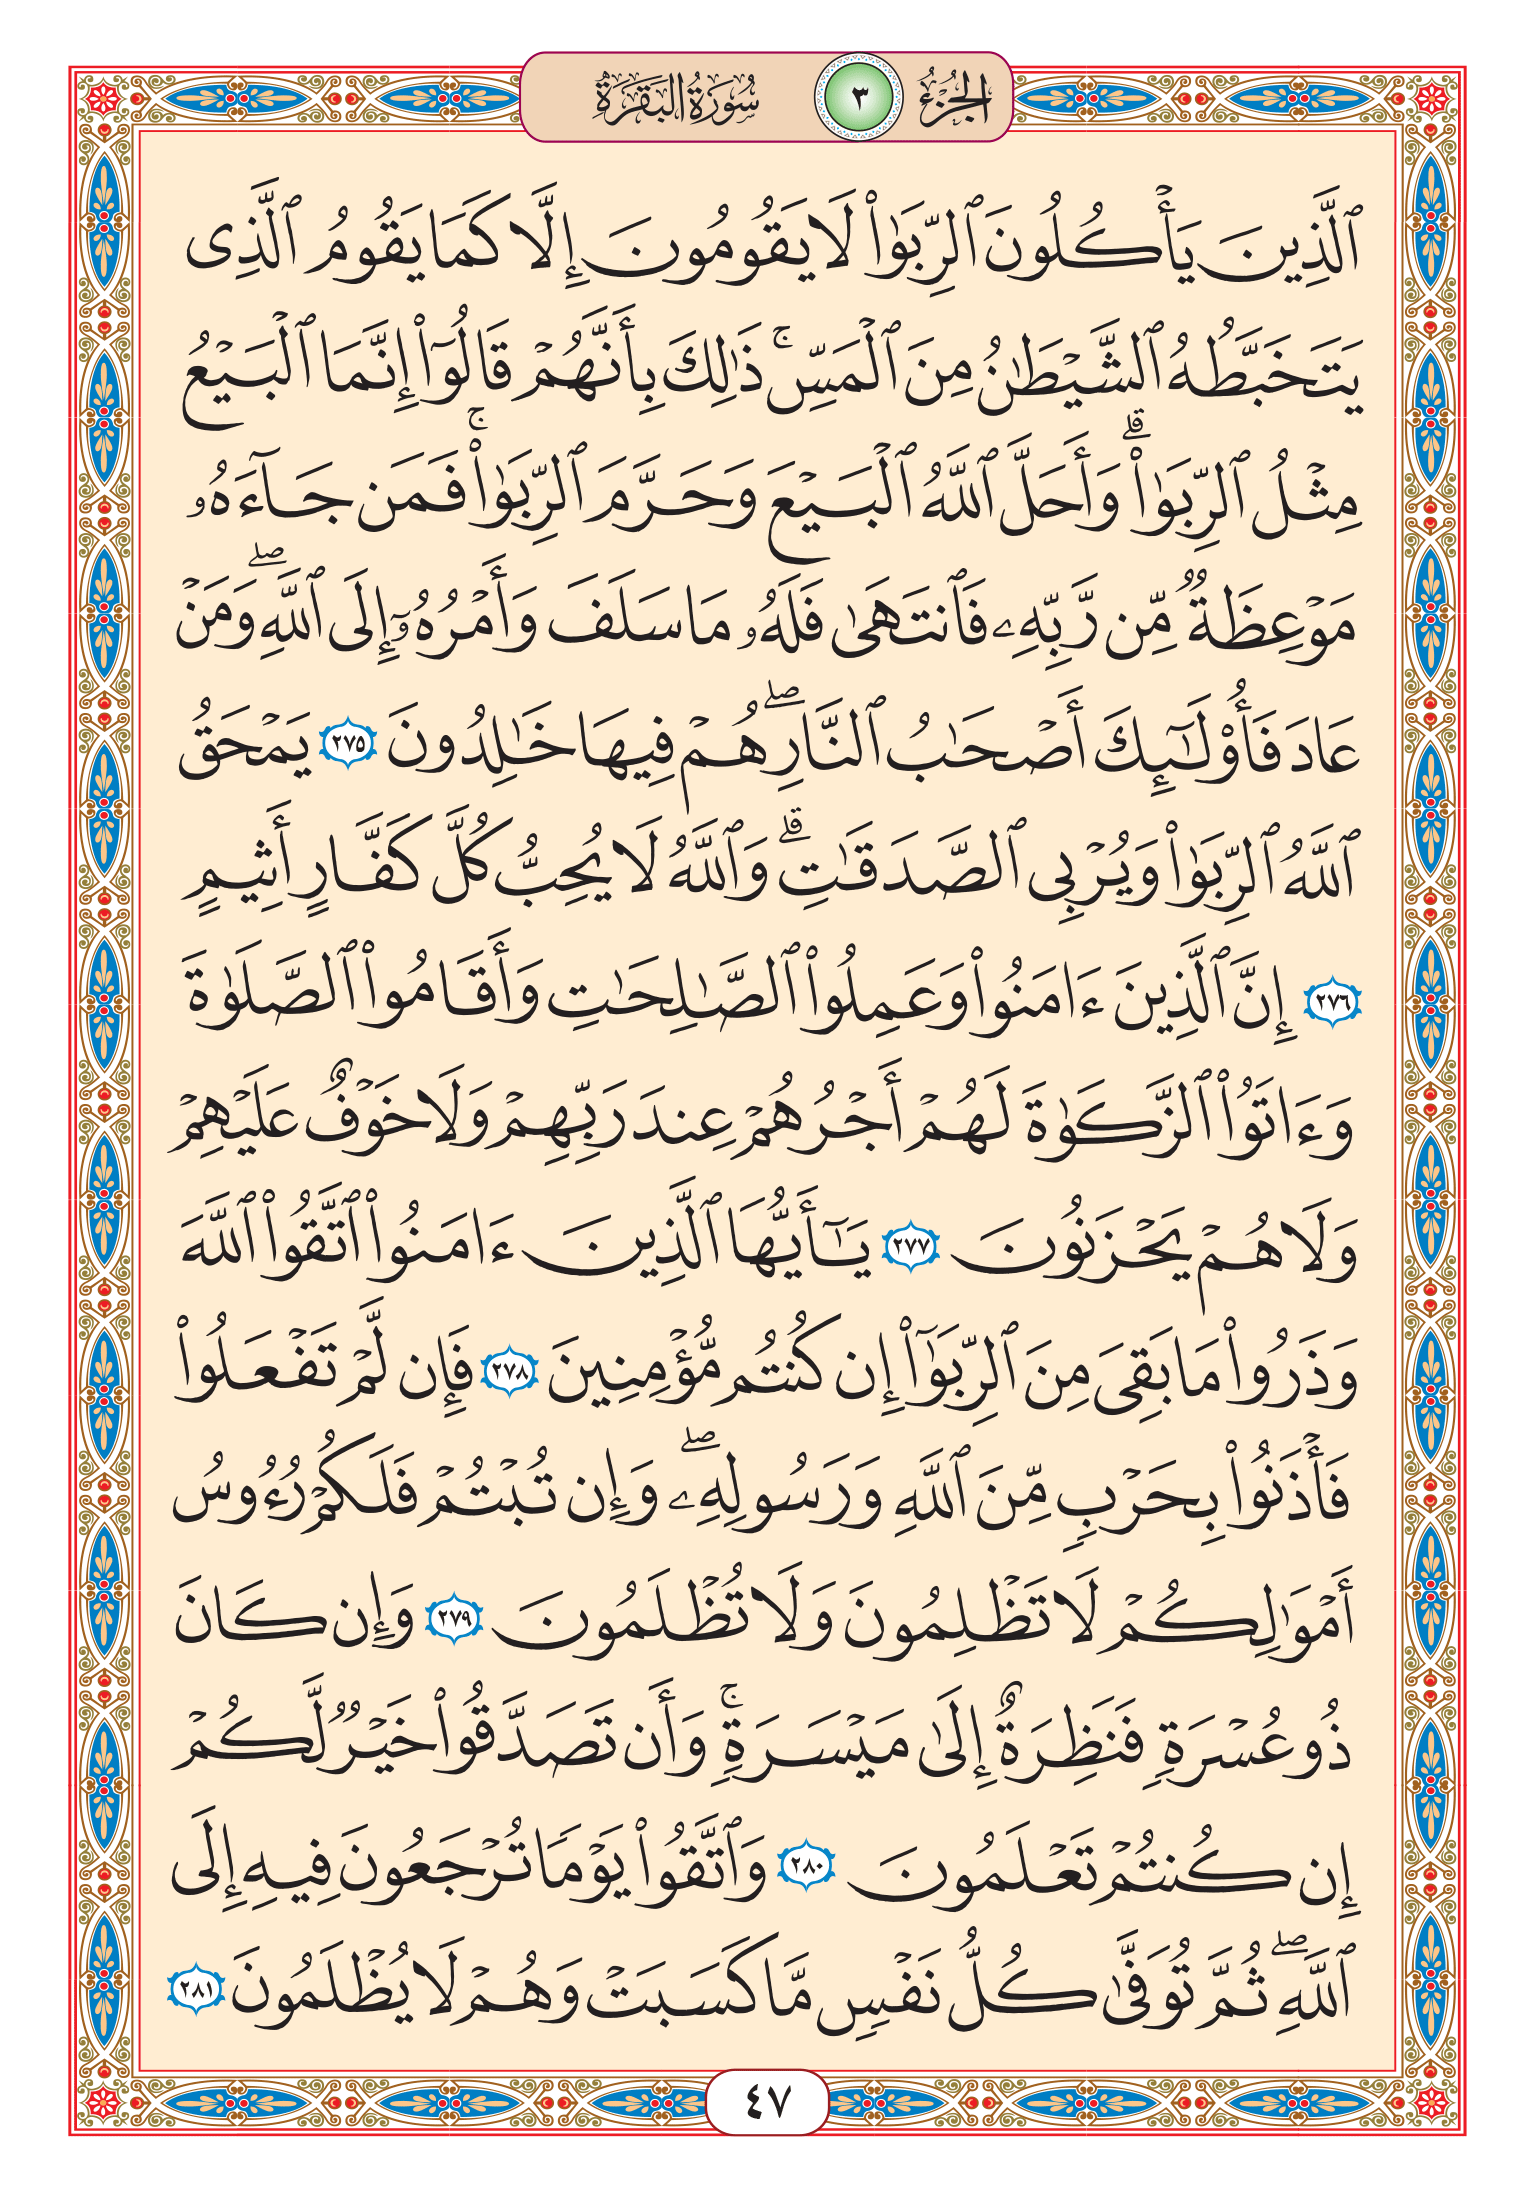 الجزء ٣ سورة البقرة
ٱلَّذِينَ يَأۡكُلُونَ ٱلرِّبَوٰاْ لَا يَقُومُونَ إِلَّا كَمَا يَقُومُ ٱلَّذِي
يَتَخَبَّطُهُ ٱلشَّيۡطَٰنُ مِنَ ٱلۡمَسِّۚ ذَٰلِكَ بِأَنَّهُمۡ قَالُوٓاْ إِنَّمَا ٱلۡبَيۡعُ
مِثۡلُ ٱلرِّبَوٰاْۗ وَأَحَلَّ ٱللَّهُ ٱلۡبَيۡعَ وَحَرَّمَ ٱلرِّبَوٰاْۚ فَمَن جَآءَهُۥ
مَوۡعِظَةٞ مِّن رَّبِّهِۦ فَٱنتَهَىٰ فَلَهُۥ مَا سَلَفَ وَأَمۡرُهُۥٓ إِلَى ٱللَّهِۖ وَمَنۡ
عَادَ فَأُوْلَٰٓئِكَ أَصۡحَٰبُ ٱلنَّارِۖ هُمۡ فِيهَا خَٰلِدُونَ ٢٧٥ يَمۡحَقُ
ٱللَّهُ ٱلرِّبَوٰاْ وَيُرۡبِي ٱلصَّدَقَٰتِۗ وَٱللَّهُ لَا يُحِبُّ كُلَّ كَفَّارٍ أَثِيمٍ
٢٧٦ إِنَّ ٱلَّذِينَ ءَامَنُواْ وَعَمِلُواْ ٱلصَّٰلِحَٰتِ وَأَقَامُواْ ٱلصَّلَوٰةَ
وَءَاتَوُاْ ٱلزَّكَوٰةَ لَهُمۡ أَجۡرُهُمۡ عِندَ رَبِّهِمۡ وَلَا خَوۡفٌ عَلَيۡهِمۡ
وَلَا هُمۡ يَحۡزَنُونَ ٢٧٧ يَٰٓأَيُّهَا ٱلَّذِينَ ءَامَنُواْ ٱتَّقُواْ ٱللَّهَ
وَذَرُواْ مَا بَقِيَ مِنَ ٱلرِّبَوٰٓاْ إِن كُنتُم مُّؤۡمِنِينَ ٢٧٨ فَإِن لَّمۡ تَفۡعَلُواْ
فَأۡذَنُواْ بِحَرۡبٖ مِّنَ ٱللَّهِ وَرَسُولِهِۦۖ وَإِن تُبۡتُمۡ فَلَكُمۡ رُءُوسُ
أَمۡوَٰلِكُمۡ لَا تَظۡلِمُونَ وَلَا تُظۡلَمُونَ ٢٧٩ وَإِن كَانَ
ذُو عُسۡرَةٖ فَنَظِرَةٌ إِلَىٰ مَيۡسَرَةٖۚ وَأَن تَصَدَّقُواْ خَيۡرٞ لَّكُمۡ
إِن كُنتُمۡ تَعۡلَمُونَ ٢٨٠ وَٱتَّقُواْ يَوۡمٗا تُرۡجَعُونَ فِيهِ إِلَى
ٱللَّهِۖ ثُمَّ تُوَفَّىٰ كُلُّ نَفۡسٖ مَّا كَسَبَتۡ وَهُمۡ لَا يُظۡلَمُونَ ٢٨١
٤٧